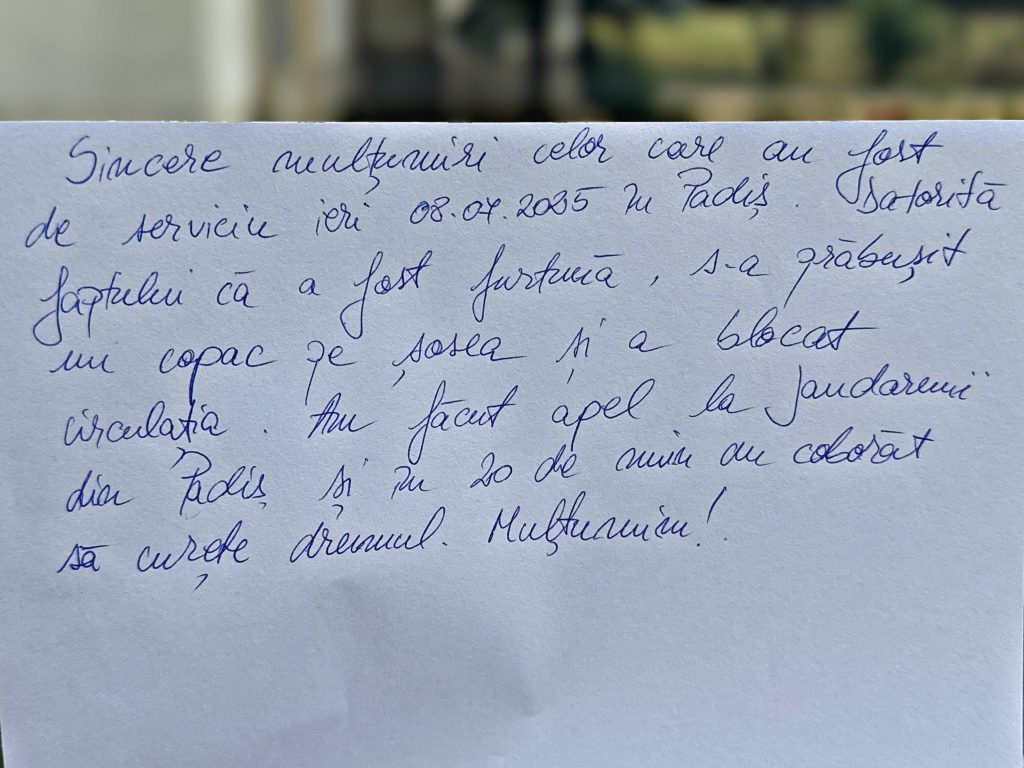 Sincere mulțumiri celor care au fost
de serviciu ieri 08.07.2025 în Padiș. Datorită
faptului că a fost furtună, s-a prăbușit
un copac pe șosea și a blocat
circulația. Am făcut apel la Jandarmii
din Padiș și în 20 de min au coborât
să curețe drumul. Mulțumim!